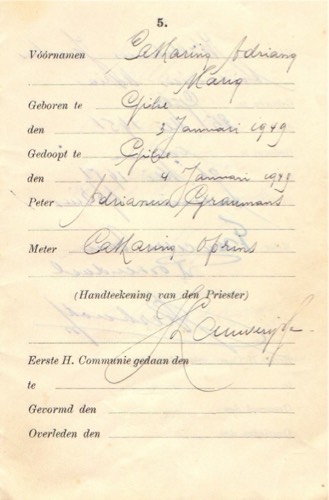 5.
Vóórnamen Catharina Adriana
Maria
Geboren te Gilze
den 3 Januari 1949
Gedoopt te Gilze
den 4 Januari 1949
Peter Adrianus Graumans
Meter Catharina Oprins
(Handteekening van den Priester)
Eerste H. Communie gedaan den
te
Gevormd den
Overleden den